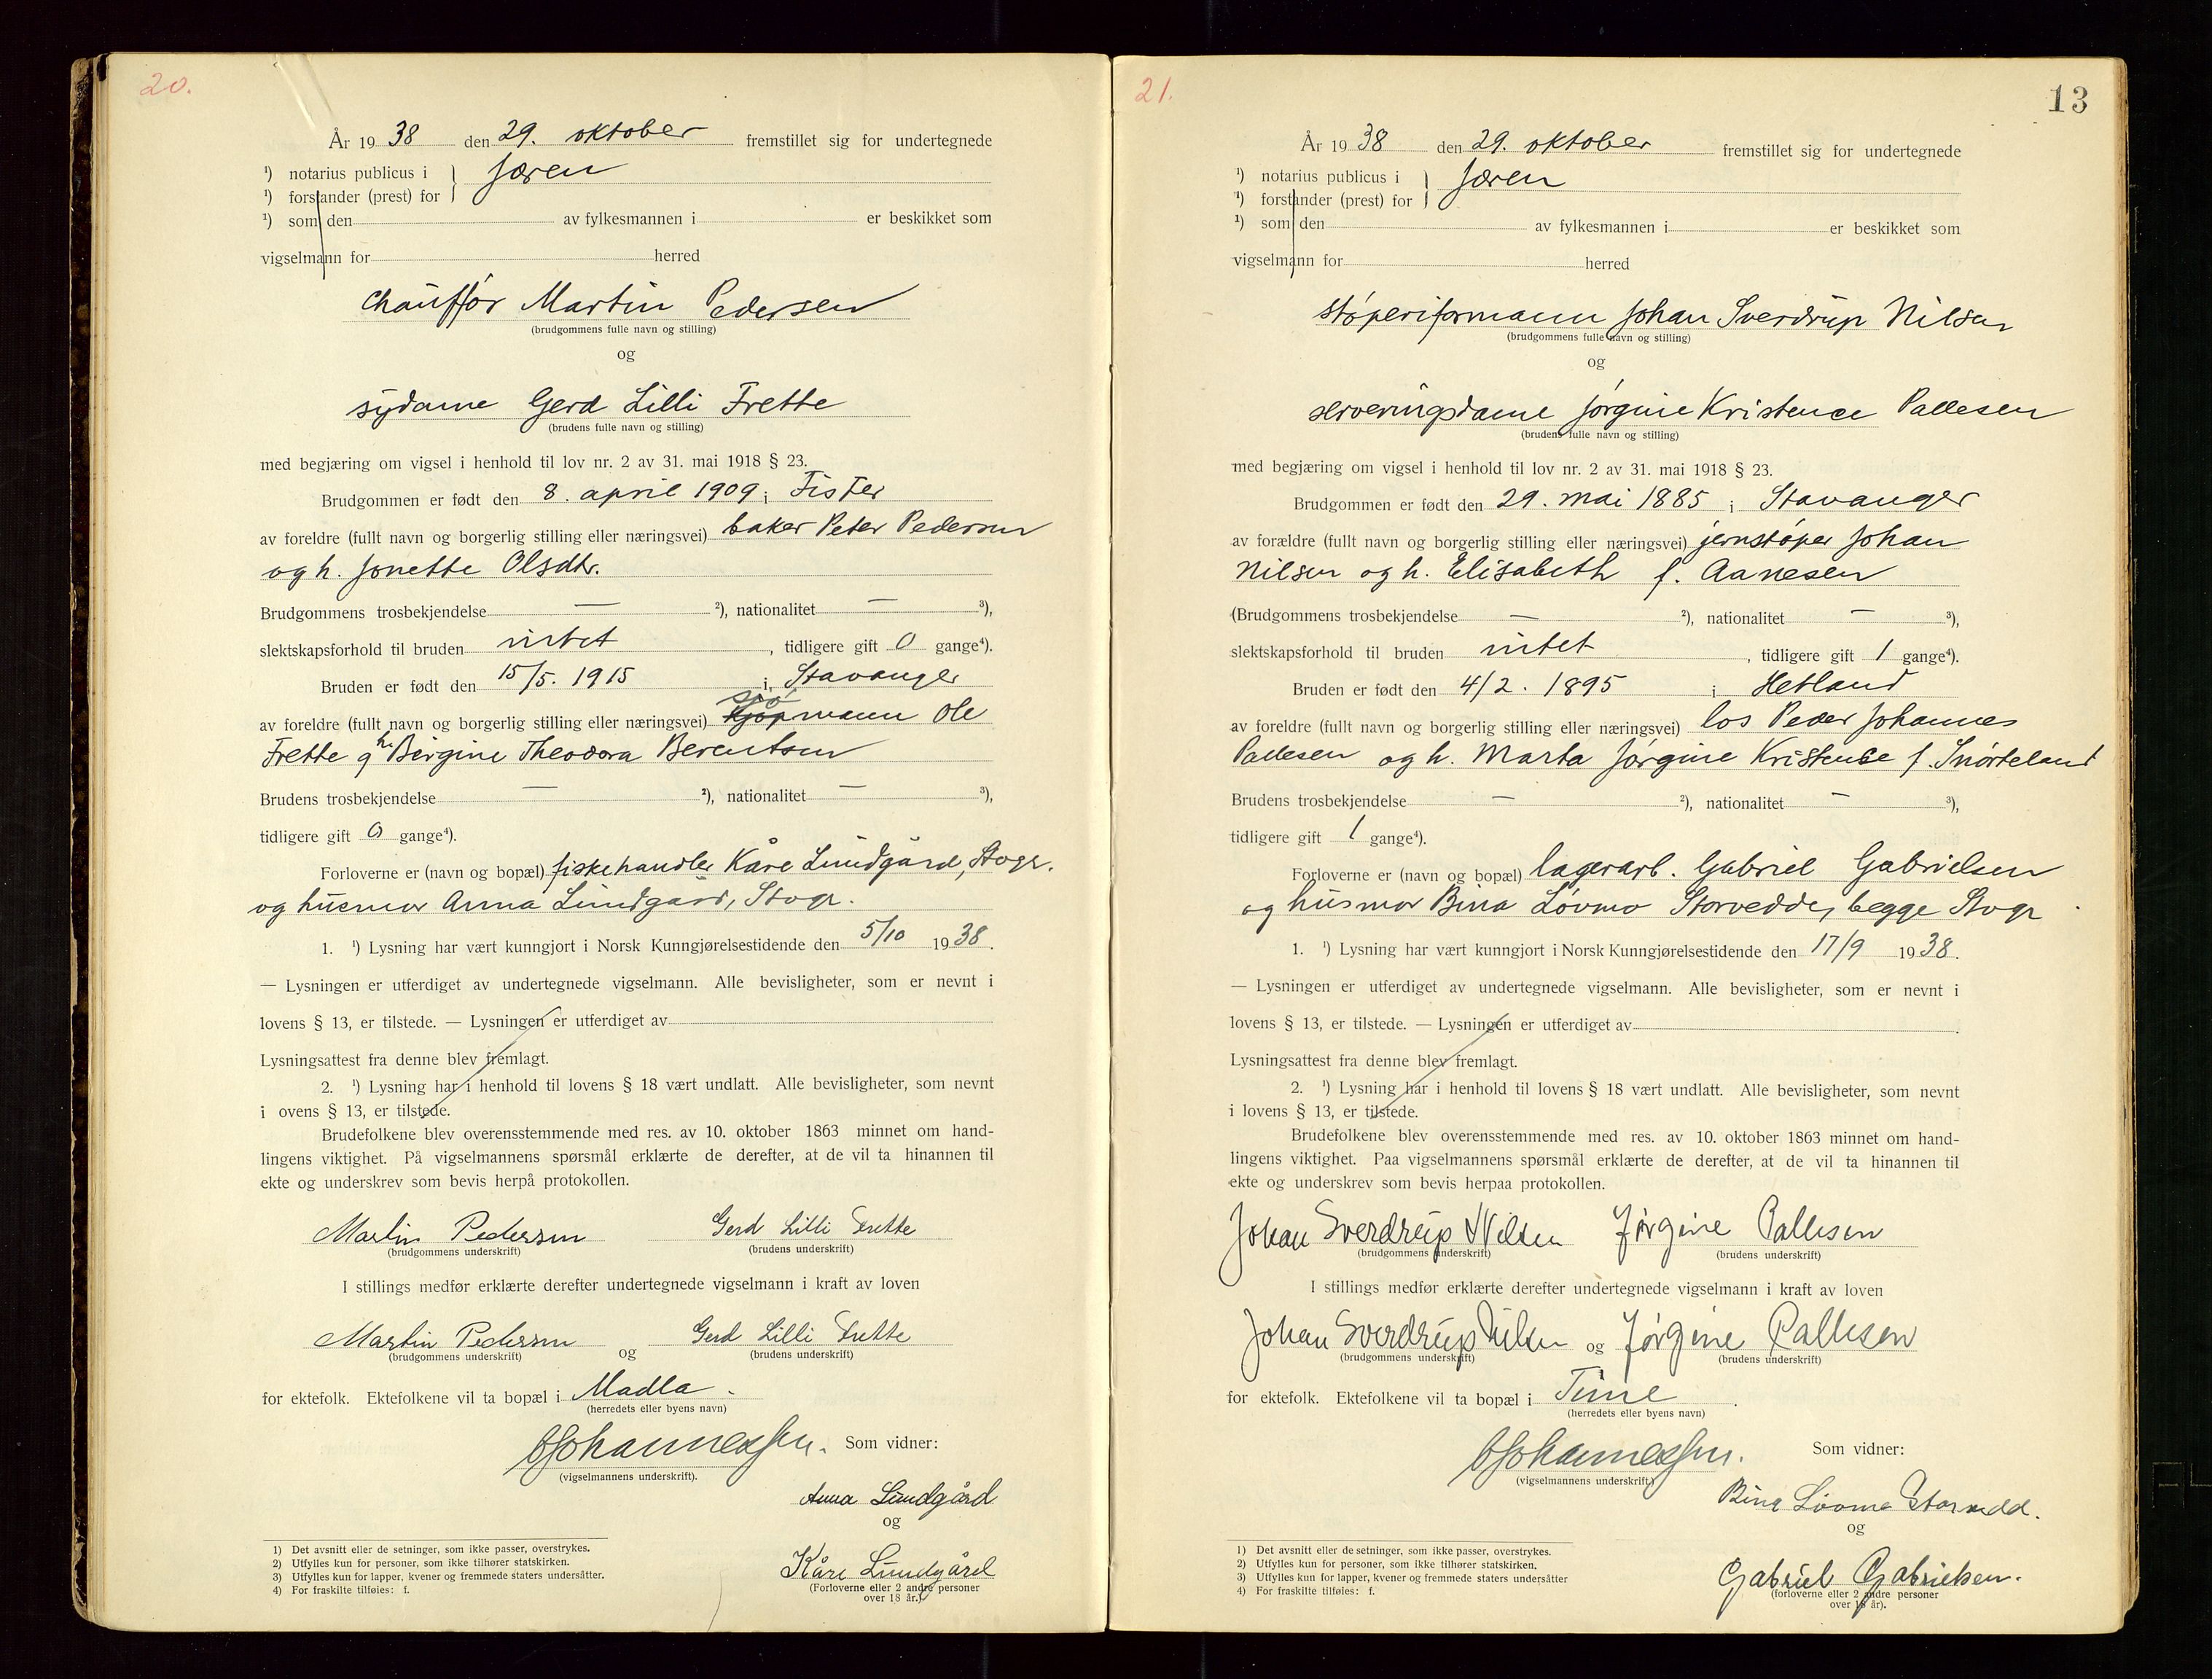 20.
År 1938 den 29. oktober fremstillet sig for undertegnede
¹) notarius publicus i } Jæren
¹) forstander (prest) for
¹) som den av fylkesmannen i er beskikket som
vigselmann for herred
chauffør Martin Pedersen
(brudgommens fulle navn og stilling)
og
sydame Gerd Lilli Frette
(brudens fulle navn og stilling)
med begjæring om vigsel i henhold til lov nr. 2 av 31. mai 1918 § 23.
Brudgommen er født den 8. april 1909 i Fister
av foreldre (fullt navn og borgerlig stilling eller næringsvei) baker Peter Pedersen
og h. Jonette Olsdtr.
Brudgommens trosbekjendelse — ²), nationalitet — ³),
slektskapsforhold til bruden intet, tidligere gift 0 gange⁴).
Bruden er født den 15/5. 1915 i Stavanger
sjø
av foreldre (fullt navn og borgerlig stilling eller næringsvei) kjøpmann Ole
Frette og h. Bergine Theodora Berentsen
Brudens trosbekjendelse — ²), nationalitet — ³),
tidligere gift 0 gange⁴).
Forloverne er (navn og bopæl) fiskehandler Kåre Lundgård, Stvgr.
og husmor Anna Lundgård, Stvgr.
1. ¹) Lysning har vært kunngjort i Norsk Kunngjørelsestidende den 5/10 1938.
— Lysningen er utferdiget av undertegnede vigselmann. Alle bevisligheter, som er nevnt i
lovens § 13, er tilstede. — Lysningen er utferdiget av
Lysningsattest fra denne blev fremlagt.
2. ¹) Lysning har i henhold til lovens § 18 vært undlatt. Alle bevisligheter, som nevnt
i ovens § 13, er tilstede.
Brudefolkene blev overensstemmende med res. av 10. oktober 1863 minnet om hand-
lingens viktighet. På vigselmannens spørsmål erklærte de derefter, at de vil ta hinannen til
ekte og underskrev som bevis herpå protokollen.
Martin Pedersen Gerd Lilli Frette
(brudgommens underskrift) (brudens underskrift)
I stillings medfør erklærte derefter undertegnede vigselmann i kraft av loven
Martin Pedersen og Gerd Lilli Frette
(brudgommens underskrift) (brudens underskrift)
for ektefolk. Ektefolkene vil ta bopæl i Madla.
(herredets eller byens navn)
Johannessen. Som vidner:
(vigselmannens underskrift).
Anna Lundgård
og
Kåre Lundgård
(Forloverne eller 2 andre personer
over 18 år.)
1) Det avsnitt eller de setninger, som ikke passer, overstrykes.
2) Utfylles kun for personer, som ikke tilhører statskirken.
3) Utfylles kun for lapper, kvener og fremmede staters undersåtter.
4) For fraskilte tilføies: f.
21.
13
År 1938 den 29. oktober fremstillet sig for undertegnede
¹) notarius publicus i } Jæren
¹) forstander (prest) for
¹) som den av fylkesmannen i er beskikket som
vigselmann for herred
støperiformann Johan Sverdrup Nilsen
(brudgommens fulle navn og stilling)
og
serveringsdame Jørgine Kristence Pallesen
(brudens fulle navn og stilling)
med begjæring om vigsel i henhold til lov nr. 2 av 31. mai 1918 § 23.
Brudgommen er født den 29. mai 1885 i Stavanger
av forældre (fullt navn og borgerlig stilling eller næringsvei) jernstøper Johan
Nilsen og h. Elisabeth f. Aanesen
(Brudgommens trosbekjendelse — ²), nationalitet — ³),
slektskapsforhold til bruden intet, tidligere gift 1 gange⁴).
Bruden er født den 4/2. 1895 i Hetland
av foreldre (fullt navn og borgerlig stilling eller næringsvei) los Peder Johannes
Pallesen og h. Marta Jørgine Kristense f. Snørteland
Brudens trosbekjendelse — ²), nationalitet — ³),
tidligere gift 1 gange⁴).
Forloverne er (navn og bopæl) lagerarb. Gabriel Gabrielsen
og husmor Bina Løvmo Storvedde, begge Stvgr
1. ¹) Lysning har vært kunngjort i Norsk Kunngjørelsestidende den 17/9 1938.
— Lysningen er utferdiget av undertegnede vigselmann. Alle bevisligheter, som er nevnt i
lovens § 13, er tilstede. — Lysningen er utferdiget av
Lysningsattest fra denne blev fremlagt.
2. ¹) Lysning har i henhold til lovens § 18 vært undlatt. Alle bevisligheter, som nevnt
i lovens § 13, er tilstede.
Brudefolkene blev overensstemmende med res. av 10. oktober 1863 minnet om hand-
lingens viktighet. Paa vigselmannens spørsmål erklærte de derefter, at de vil ta hinannen til
ekte og underskrev som bevis herpaa protokollen.
Johan Sverdrup Nilsen Jørgine Pallesen
(brudgommens underskrift) (brudens underskrift)
I stillings medfør erklærte derefter undertegnede vigselmann i kraft av loven
Johan Sverdrup Nilsen og Jørgine Pallesen
(brudgommens underskrift) (brudens underskrift)
for ektefolk. Ektefolkene vil ta bopæl i Time.
(herredets eller byens navn)
Johannessen. Som vidner:
(vigselmannens underskrift)
Bina Løvmo
og
Gabriel Gabrielsen.
(forloverne eller 2 andre personer
over 18 år).
1) Det avsnitt eller de setninger, som ikke passer, overstrykes.
2) Utfylles kun for personer, som ikke tilhører statskirken.
3) Utfylles kun for lapper, kvener og fremmede staters undersåtter
4) For fraskilte tilføies: f.